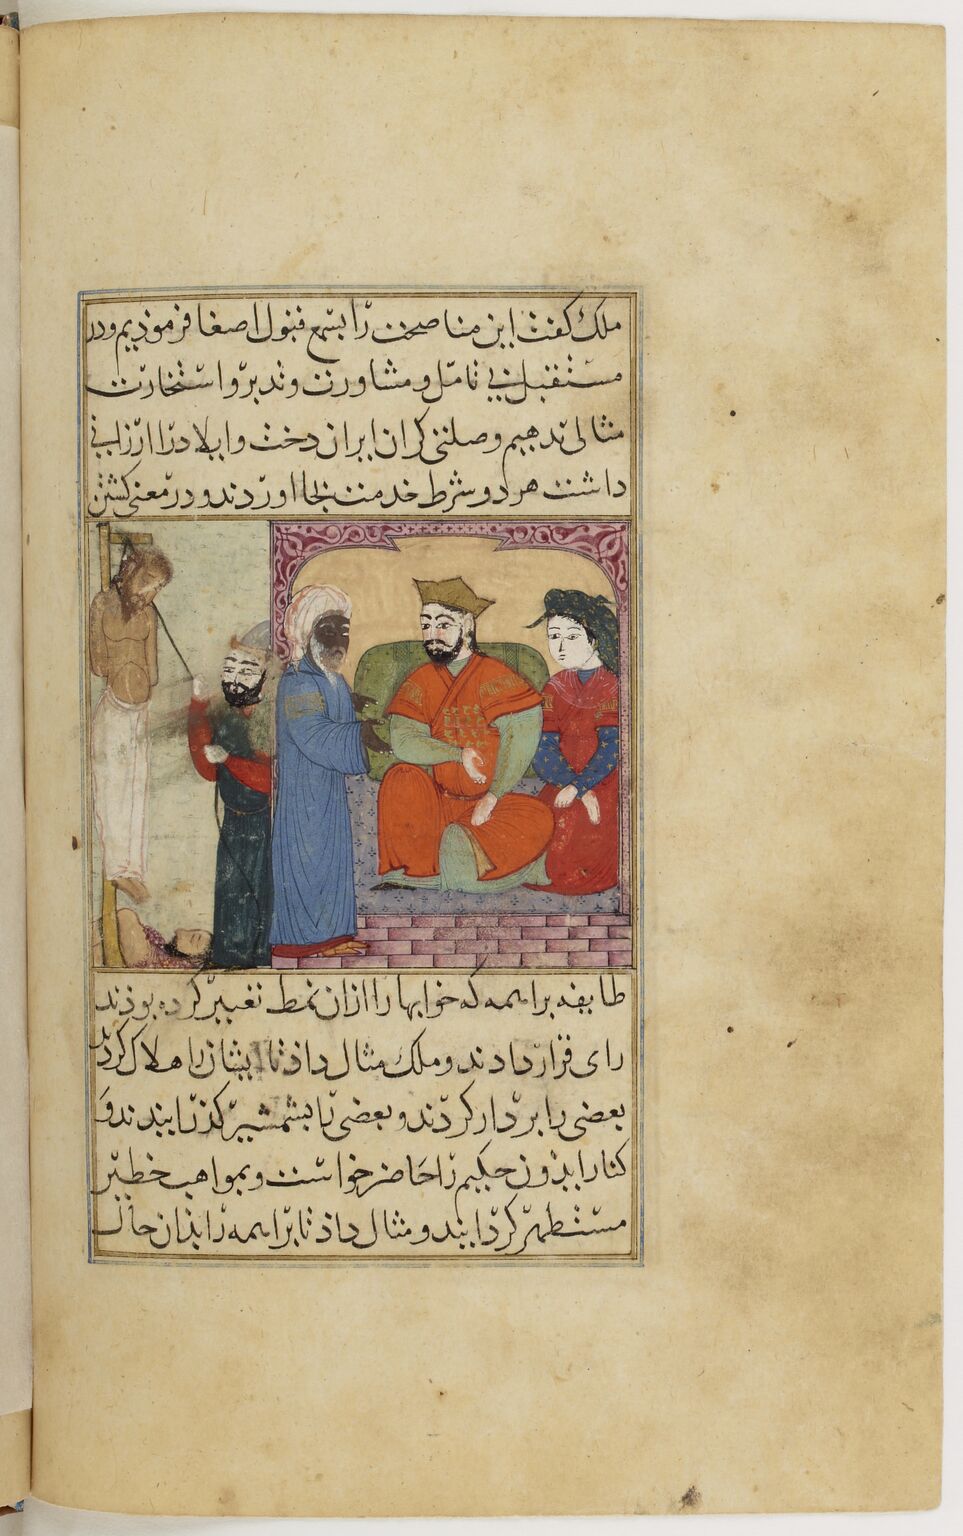 ملک کفت این مناصحت را بسمع قبول اصغا فرموذیم و در
مستقبل بی تامل و مشاورت و تدبر و استخارت
مثالی ندهیم و صلتی کران ایران دخت و ابلاد را ارزانی
داشت هر دو شرط خدمت بجا اوردند و در معنی کشتن
طایفه براهمه که خوابها را ازان نمط تعبیر کرده بوذند
رای قرار دادند و ملک مثال داذ تا ایشان را هلاک کردند
بعضی را بر دار کردند و بعضی را بشمشیر کذرانیدند و
کنارایذون حکیم را حاضر خواست و بمواهب خطیر
مستظهر کردانید و مثال داذ تا براهمه را بذان حال